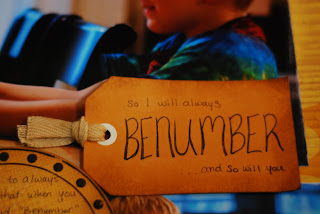 So I will always
BENUMBER
...and so will you.
to always
that when you
"Benumber"